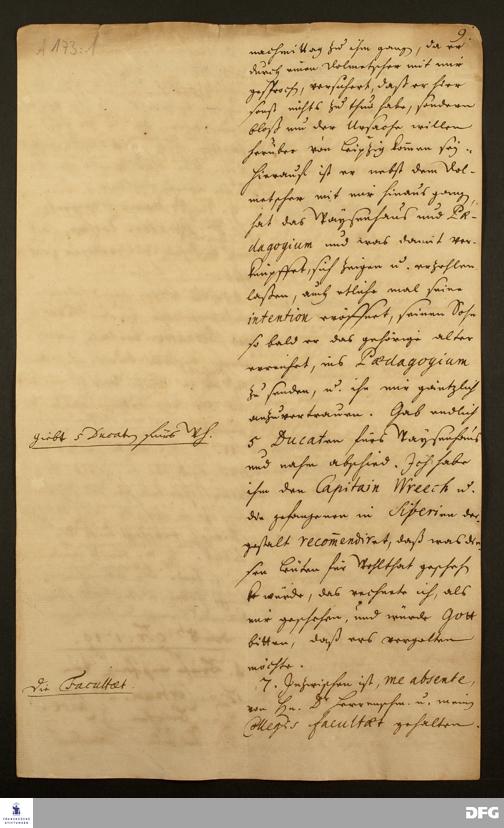 A 173:1
9.
nachmittag zu ihm gang, da er
durch einen Dolmetscher mit mir
gesproch, versichert, daß er hier
sonst nichts zu thun habe, sondern
bloß um der Ursache willen
herüber von Leipzig kom̄en sey.
Hierauf ist er nebst dem Dol-
metscher mit mir hinaus gang,
hat das Waysenhaus und Pæ-
dagogium und was damit ver-
knüpffet, sich zeigen u. erzehlen
laßen, auch etliche mal seine
intention eröffnet, seinen Sohn
so bald er das gehörige alter
erreichet, ins Pædagogium
zu senden, u. ihn mir gäntzlich
anzuvertrauen. Gab endlich
giebt 5 Ducat fürs Wh.
5 Ducaten fürs Waysenhaus
und nahm abschied. Ich habe
ihm den Capitain Wreech u.
die gefangenen in Siberien der-
gestalt recom̄endiret, daß was die-
sen Leuten für Wohlthat gescheh
würde, das rechnete ich, als
mir geschehen, und würde Gott
bitten, daß ers vergelten
möchte.
Die Facultæt.
7. Inzwischen ist, me absente,
von Hn. Dr Herrnschm. u. meinen
Collegis facultæt gehalten.
FRANCKESCHE STIFTUNGEN
DFG